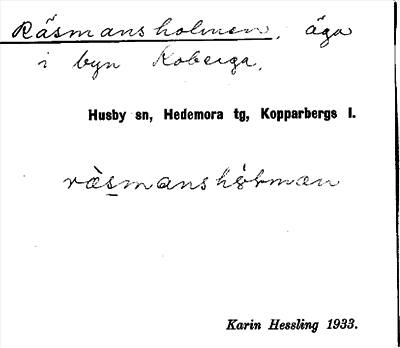 Räsmansholmen, äga
i byn Koberga.
Husby sn, Hedemora tg, Kopparbergs l.
ràs̲manshòłmæn
Karin Hessling 1933.